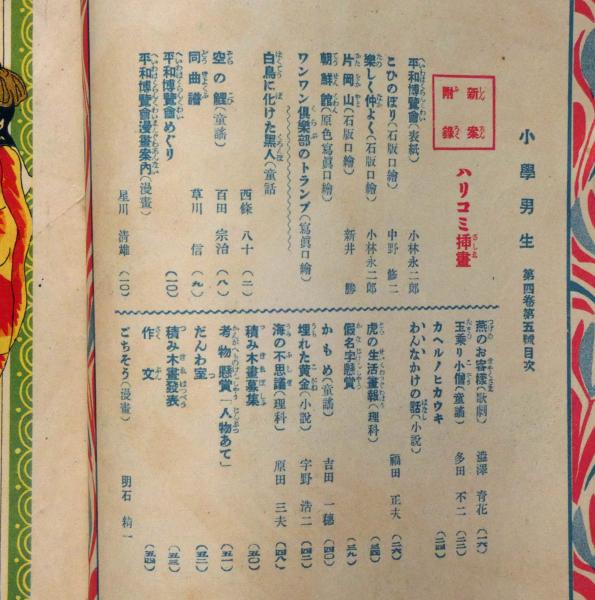 小學男生 第四卷第五號目次
新案附錄 ハリコミ挿畫
平和博覽會(表紙) 小林永二郎
こひのぼり(石版口繪) 中野修二
樂しく仲よく(石版口繪) 小林永二郎
片岡山(石版口繪) 新井勝
朝鮮館(原色寫眞口繪)
ワンワン俱樂部のトランプ(寫眞口繪)
白鳥に化けた黑人(童話) 西條八十(二)
空の鯉(童謠) 百田宗治(八)
同曲譜 草川信(九)
平和博覽會めぐり (一〇)
平和博覽會漫畫案內(漫畫) 星川淸雄(一〇)
燕のお客樣(歌劇) 澁澤靑花(一六)
玉乘り小僧(童謠) 多田不二(二二)
カヘルノヒカウキ (二四)
わんなかけの話(小說) 福田正夫(二六)
虎の生活畫報(理科) (三四)
假名字懸賞 (三九)
かもめ(童謠) 吉田一穗(四〇)
埋れた黃金(小說) 宇野浩二(四二)
海の不思議(理科) 原田三夫(四八)
積み木畫募集 (五〇)
考物懸賞「人物あて」 (五一)
だんわ室 (五二)
積み木畫發表 (五三)
作文 (五四)
ごちそう(漫畫) 明石精一